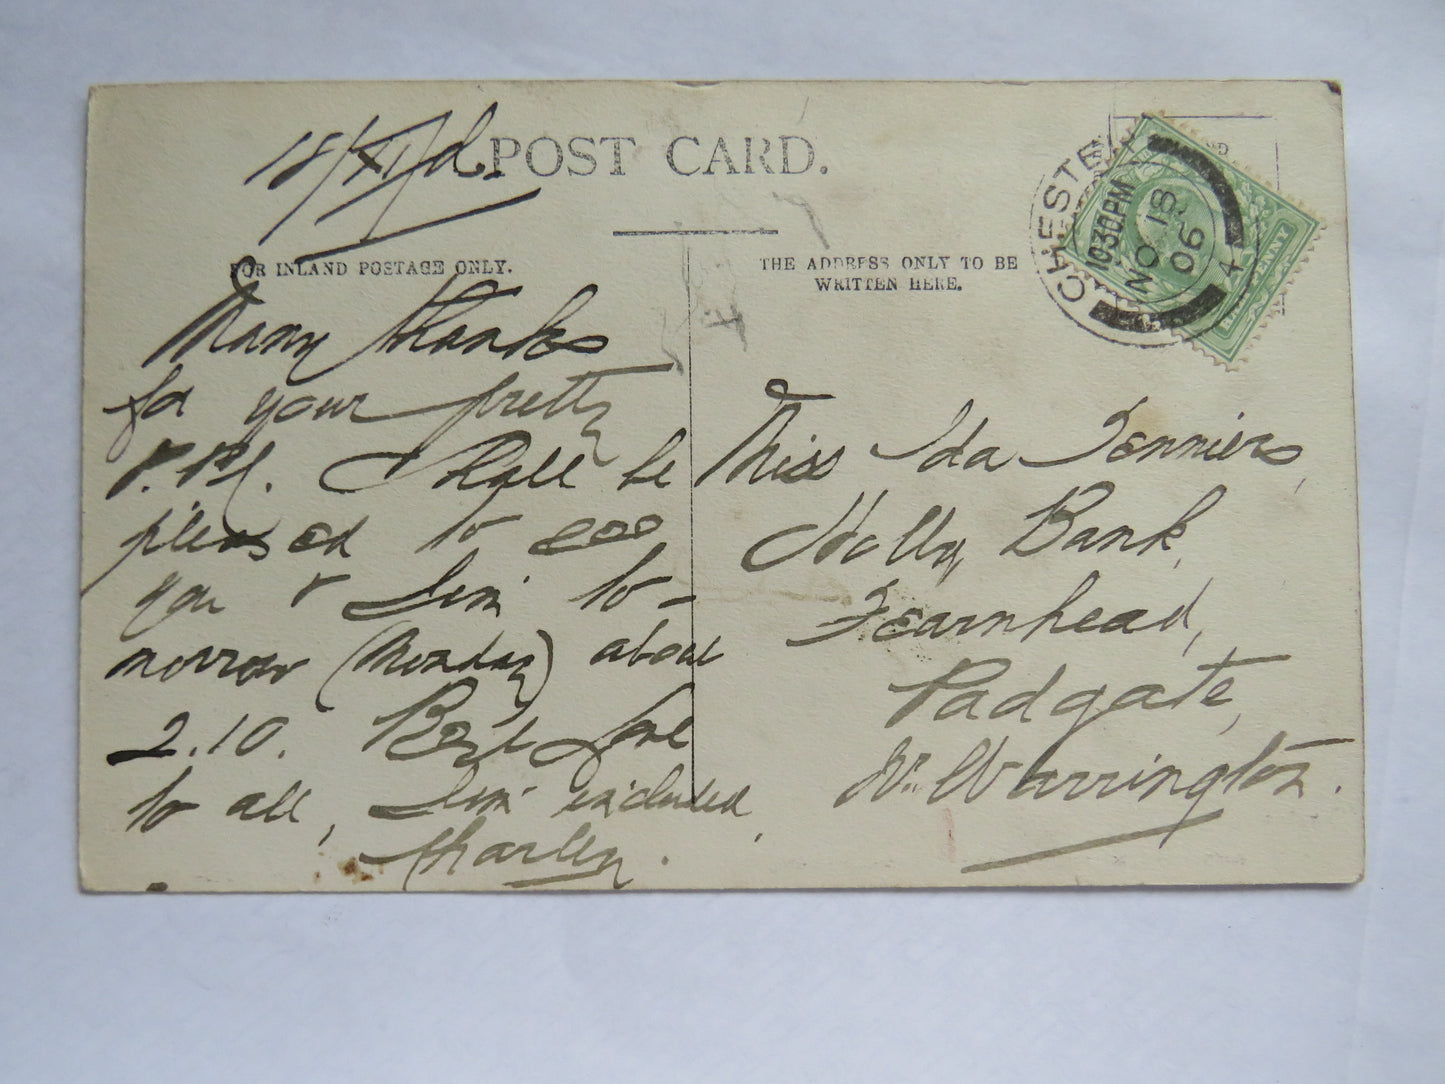 18/XI/06.
POST CARD.
FOR INLAND POSTAGE ONLY.
Many thanks
for your pretty
P.P.C. I shall be
pleased to see
you & Jim to-
morrow (Monday) about
2.10. Best love
to all, Jim included,
Charley.
THE ADDRESS ONLY TO BE
WRITTEN HERE.
CHESTER
10 30 PM
NO 18
06
4
PENNY
Miss Ida Jenniers,
Holly Bank,
Fearnhead,
Padgate,
Nr. Warrington.